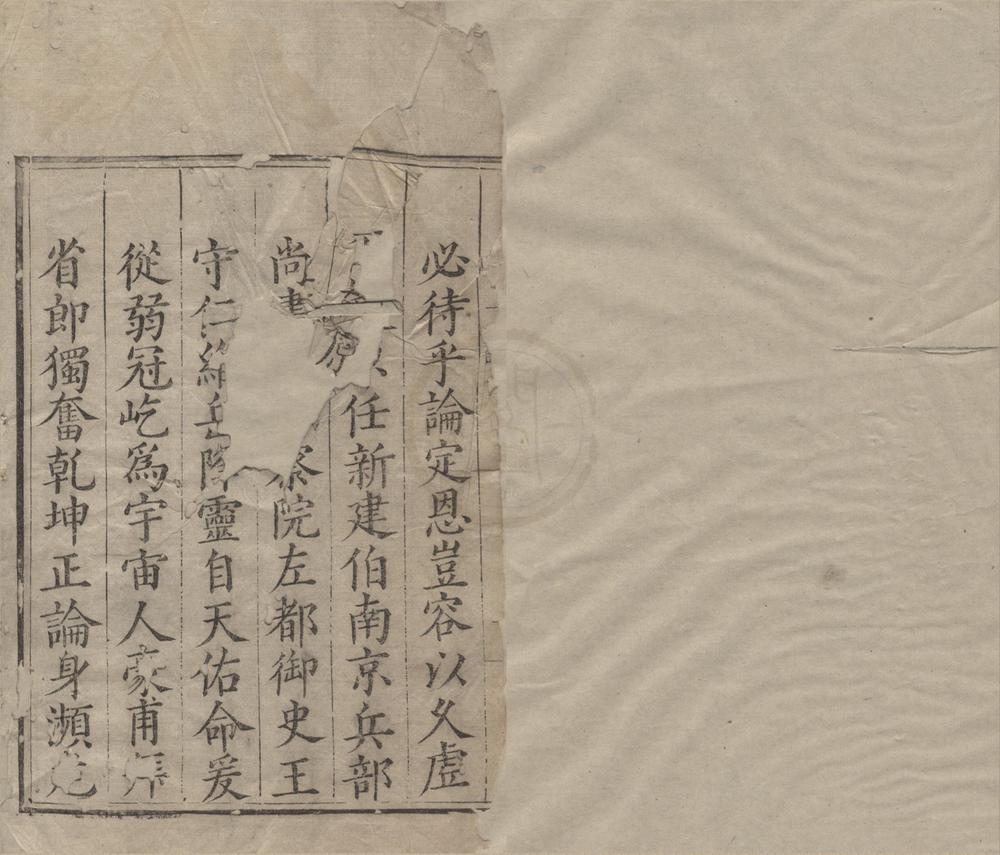 必待乎論定恩豈容以久虛
任新建伯南京兵部
尚書察院左都御史王
守仁維岳降靈自天佑命爰
從弱冠屹爲宇宙人豪甫
省郎獨奮乾坤正論身瀕